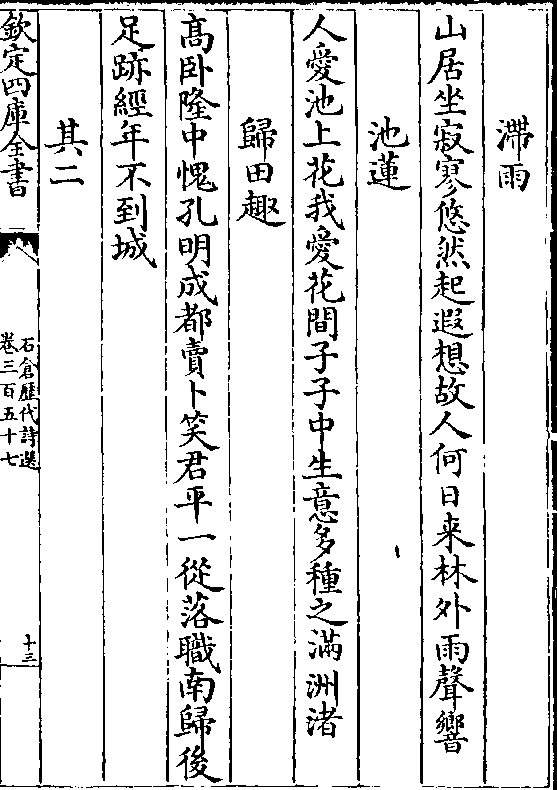 滯雨
山居坐寂寥悠然起遐想故人何日来林外雨聲響
池蓮
人愛池上花我愛花間子子中生意多種之滿洲渚
歸田趣
髙卧隆中愧孔明成都賣卜笑君平一從落職南歸後
足跡經年不到城
其二
欽定四庫全書
石倉歴代詩選
卷三百五十七
十三